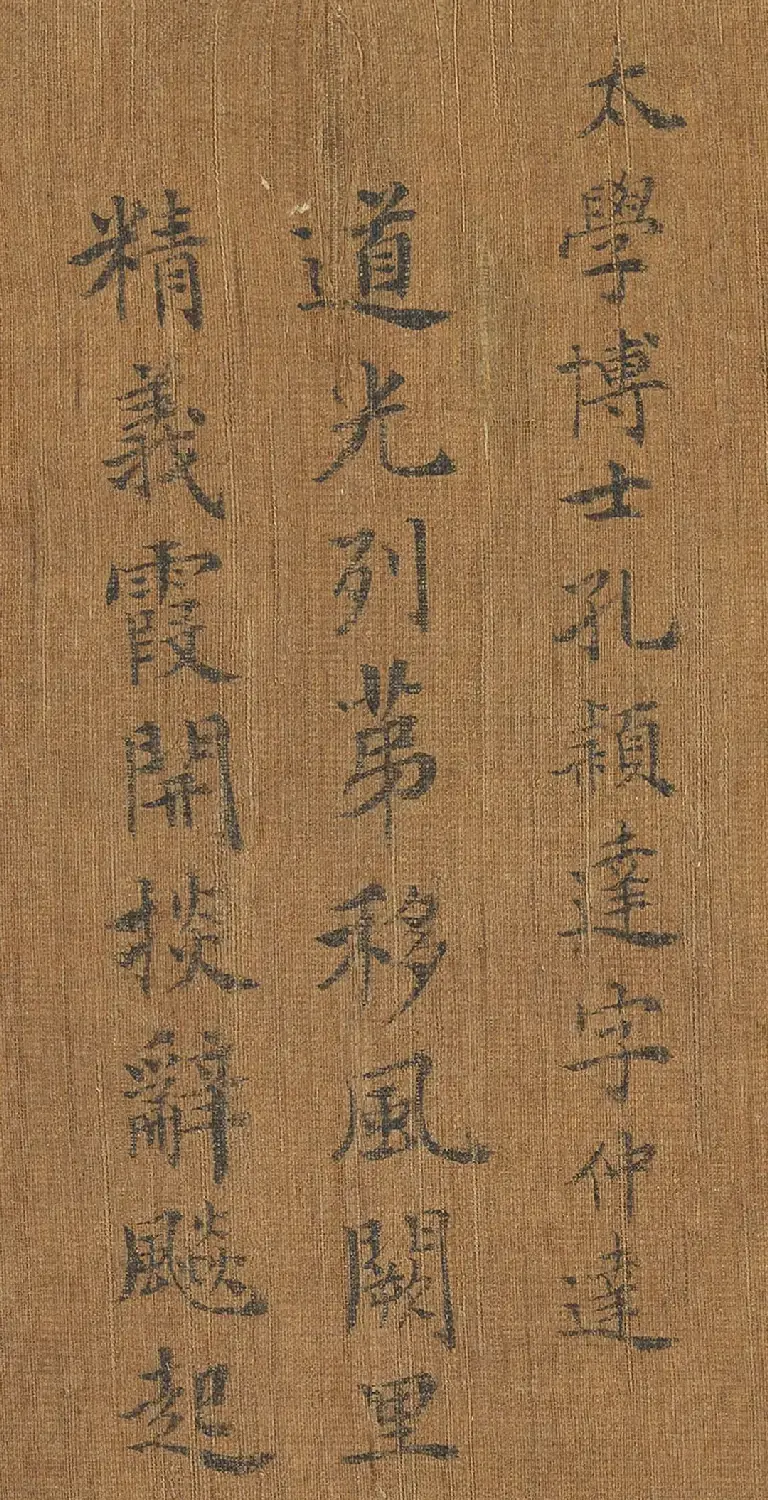 太學博士孔穎達字仲達
道光列第移風闕里
精義霞開掞辭飈起